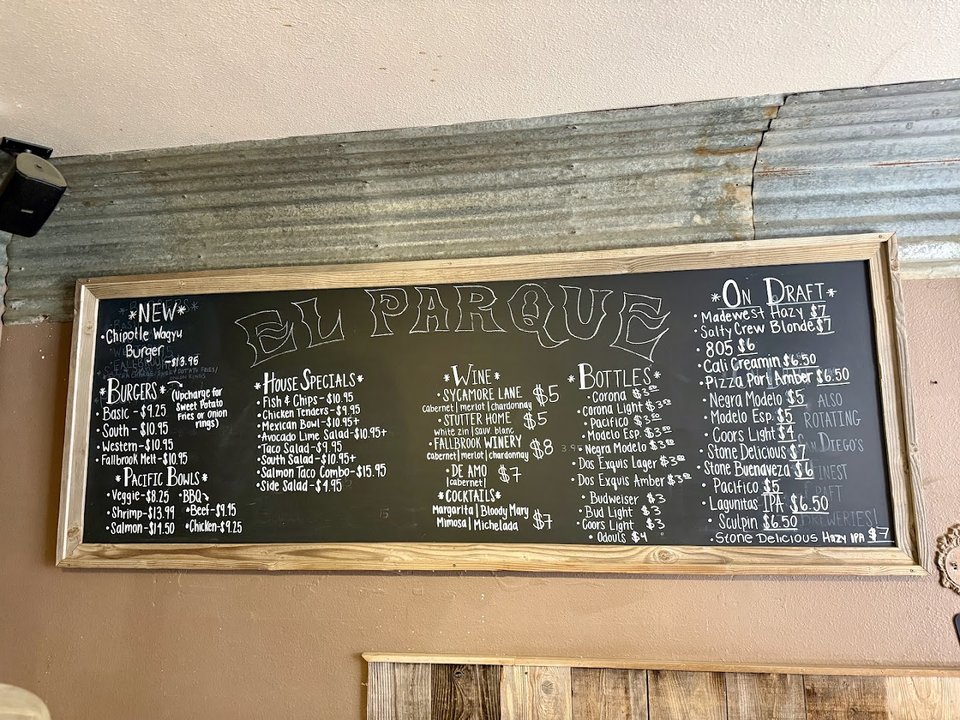 EL PARQUE
*NEW*
• Chipotle Wagyu
Burger
-$13.95
*BURGERS*
• Basic - $9.25
• South - $10.95
• Western - $10.95
• Fallbrook Melt - $10.95
(Upcharge for
Sweet Potato
Fries or onion
rings)
*PACIFIC BOWLS*
• Veggie - $8.25
• Shrimp - $13.99
• Salmon - $14.50
• BBQ
• Beef - $9.95
• Chicken - $9.25
*HOUSE SPECIALS*
• Fish & Chips - $10.95
• Chicken Tenders - $9.95
• Mexican Bowl - $10.95+
• Avocado Lime Salad - $10.95+
• Taco Salad - $9.95
• South Salad - $10.95+
• Salmon Taco Combo - $15.95
• Side Salad - $4.95
*WINE*
• SYCAMORE LANE $5
cabernet | merlot | chardonnay
• STUTTER HOME $5
white zin | sauv. blanc
• FALLBROOK WINERY $8
cabernet | merlot | chardonnay
• DE AMO $7
|cabernet|
*COCKTAILS*
Margarita | Bloody Mary
Mimosa | Michelada $7
*BOTTLES*
• Corona
• Corona Light
• Pacifico
• Modelo Esp.
• Negra Modelo
• Dos Exquis Lager
• Dos Exquis Amber
• Budweiser $3
• Bud Light $3
• Coors Light $3
• Odouls $4
*ON DRAFT*
• Madewest Hazy $7
• Salty Crew Blonde $7
• 805 $6
• Cali Creamin $6.50
• Pizza Port Amber $6.50
• Negra Modelo $5
• Modelo Esp. $5
• Coors Light $4
• Stone Delicious $7
• Stone Buenaveza $6
• Pacifico $5
• Lagunitas IPA $6.50
• Sculpin $6.50
• STONE DELICIOUS HAZY IPA $7
ALSO
ROTATING
DIEGO'S
BREWERIES!